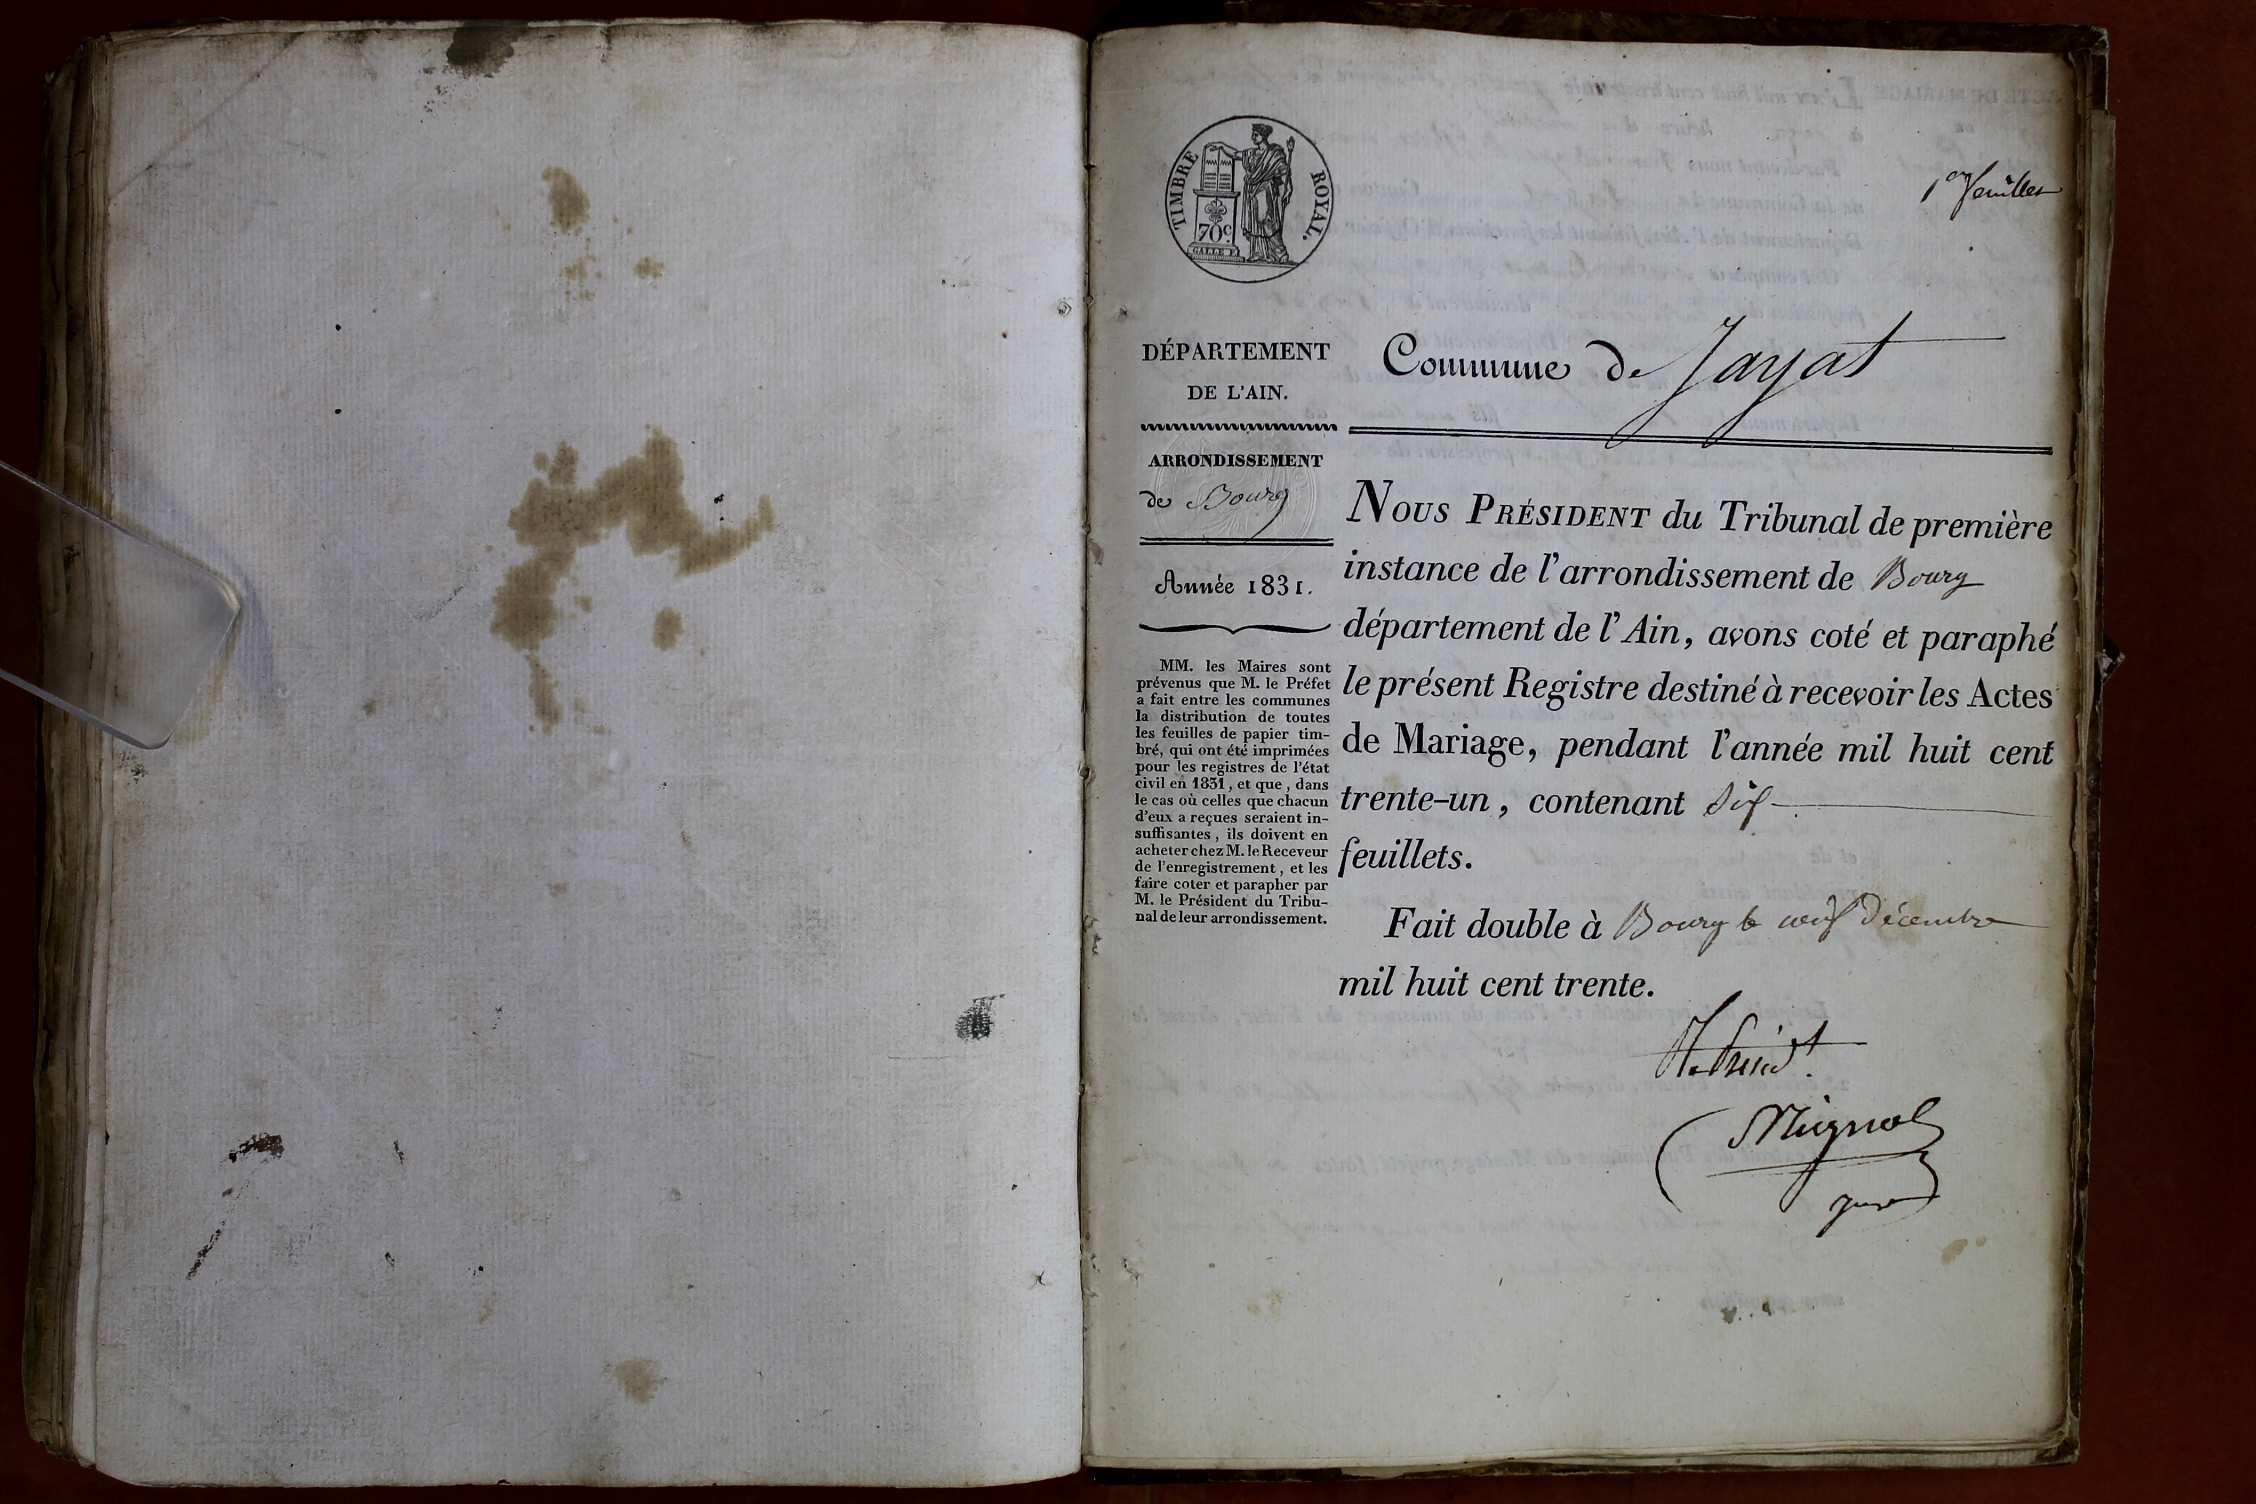 TIMBRE ROYAL.
70c.
GALLE F.
1er feuillet
DÉPARTEMENT
DE L'AIN.
ARRONDISSEMENT
de Bourg
Année 1831.
MM. les Maires sont
prévenus que M. le Préfet
a fait entre les communes
la distribution de toutes
les feuilles de papier tim-
bré, qui ont été imprimées
pour les registres de l'état
civil en 1831, et que, dans
le cas où celles que chacun
d'eux a reçues seraient in-
suffisantes, ils doivent en
acheter chez M. le Receveur
de l'enregistrement, et les
faire coter et parapher par
M. le Président du Tribu-
nal de leur arrondissement.
Commune de Jayat
NOUS PRÉSIDENT du Tribunal de première
instance de l'arrondissement de Bourg
département de l'Ain, avons coté et paraphé
le présent Registre destiné à recevoir les Actes
de Mariage, pendant l'année mil huit cent
trente-un, contenant six
feuillets.
Fait double à Bourg le neuf Décembre
mil huit cent trente.